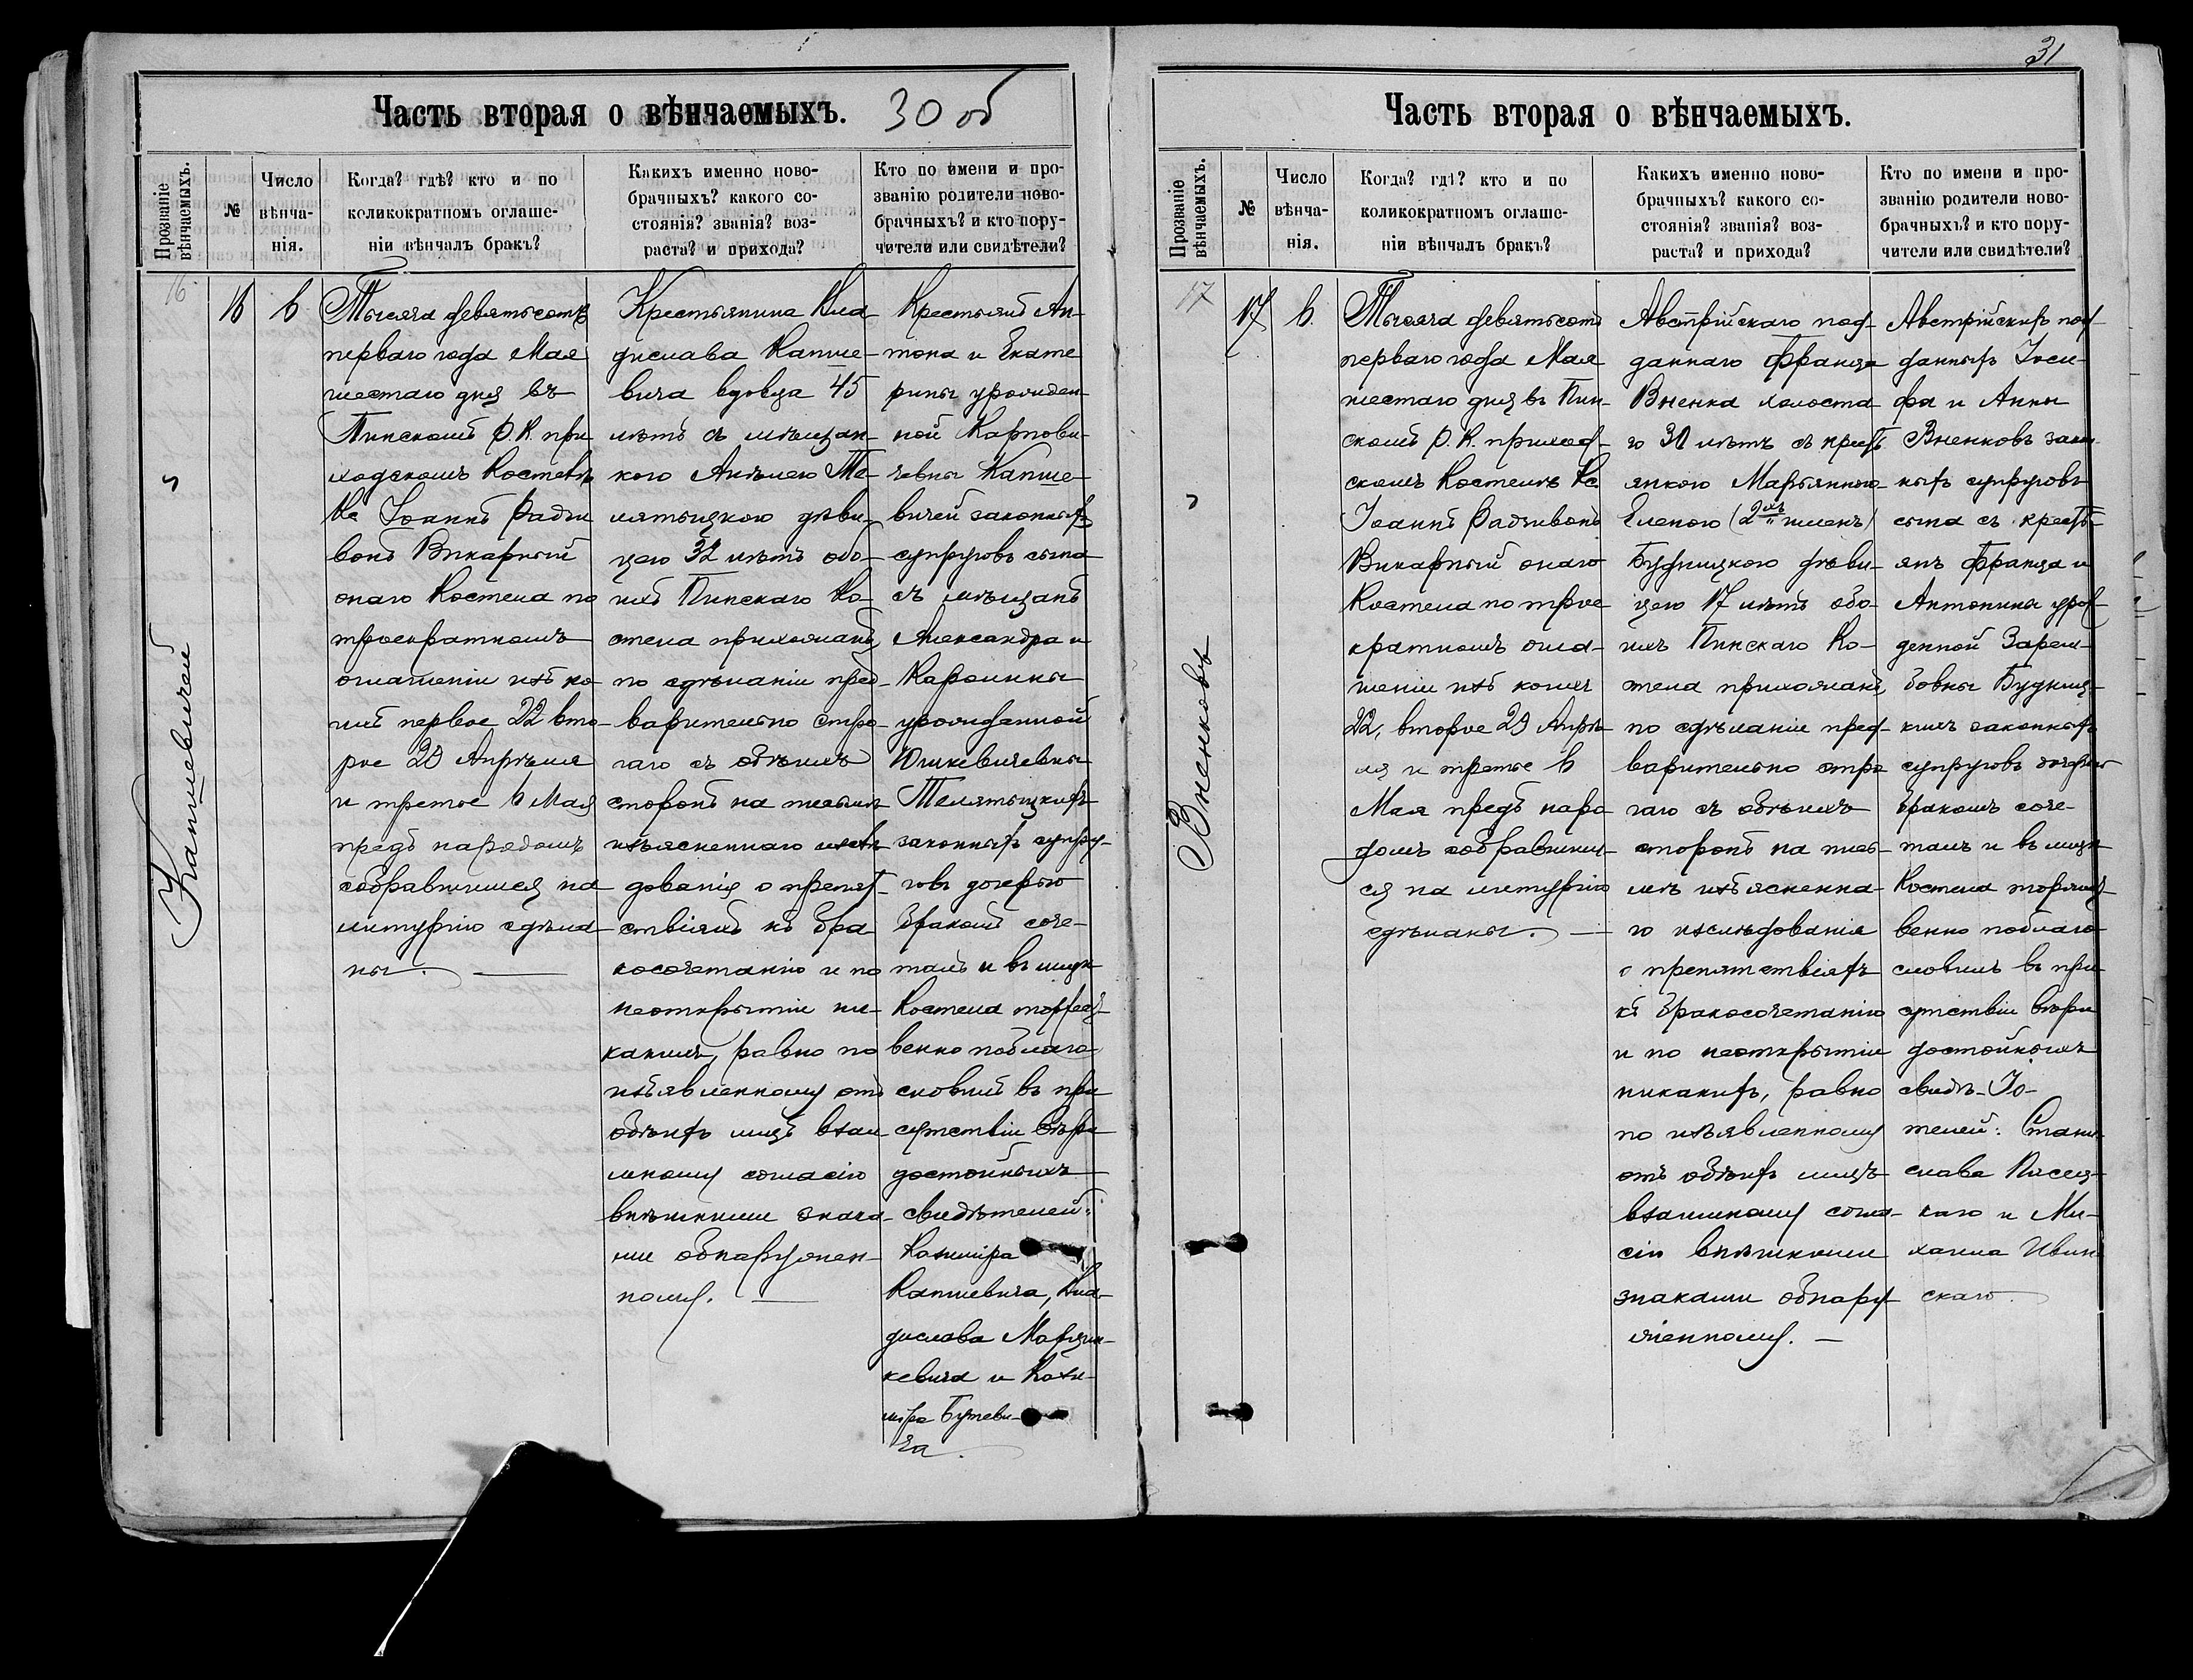 Часть вторая о вѣнчаемыхъ. 30 об
Прозваніе вѣнчаемыхъ.
№
Число вѣнча-
нія.
Когда? гдѣ? кто и по
коликократномъ оглаше-
ніи вѣнчалъ бракъ?
Какихъ именно ново-
брачныхъ? какого со-
стоянія? званія? воз-
раста? и прихода?
Кто по имени и про-
званію родители ново-
брачныхъ? и кто пору-
чители или свидѣтели?
16
Капшевичей
16
6
Тысяча девятьсотъ
перваго года Мая
шестаго дня въ
Пинскомъ Р. К. при
ходскомъ Костелѣ
Кс Іоаннъ Радзи
вонъ Викарный
онаго Костела по
троекратномъ
оглашеніи изъ ко
ихъ первое 22 вто-
рое 29 Апрѣля
и третье 6 Мая
предъ народомъ
собравшимся на
литургію сдѣла-
ны. —
Крестьянина Вла-
дислава Капше-
вича вдовца 45
лѣтъ съ мѣщан-
кою Анѣлею Те-
лятыцкою дѣви-
цею 32 лѣтъ обо-
ихъ Пинскаго Ко-
стела прихожанъ,
по сдѣланіи пред-
варительно стро-
гаго съ обѣихъ
сторонъ на письмѣ
изъясненнаго изслѣ
дованія о препят-
ствіяхъ къ бра
косочетанію и по
неоткрытіи ни-
какихъ, равно по
изъявленному отъ
обѣихъ лицъ взаи
мному согласію
внѣшними знака-
ми обнаружен-
ному. —
Крестьянъ Ан-
тона и Екате
рины урожден-
ной Карпови-
чевны Капше-
вичей законныхъ
супруговъ сына
съ мѣщанъ
Александра и
Каролины
урожденной
Юшкевичевны
Телятыцкихъ
законныхъ супру-
говъ дочерью
бракомъ соче-
талъ и въ лицѣ
Костела торжест-
венно поблаго-
словилъ въ при
сутствіи вѣро
достойныхъ
свидѣтелей:
Казиміра
Капшевича, Вла-
дислава Марцин-
кевича и Кази-
міра Бутеви-
ча.
31
Часть вторая о вѣнчаемыхъ.
Прозваніе вѣнчаемыхъ.
№
Число вѣнча-
нія.
Когда? гдѣ? кто и по
коликократномъ оглаше-
ніи вѣнчалъ бракъ?
Какихъ именно ново-
брачныхъ? какого со-
стоянія? званія? воз-
раста? и прихода?
Кто по имени и про-
званію родители ново-
брачныхъ? и кто пору-
чители или свидѣтели?
17
Вненковъ
17
6.
Тысяча девятьсотъ
перваго года Мая
шестаго дня въ Пин-
скомъ Р. К. приход-
скомъ Костелѣ Кс.
Іоаннъ Радзивонъ
Викарный онаго
Костела по трое
кратномъ огла-
шеніи изъ коихъ
22, второе 29 Апрѣ-
ля и третье 6
Мая предъ наро
домъ собравшим-
ся на литургію
сдѣланы. —
Австрійскаго под-
даннаго Франца
Вненка холоста
го 31 лѣтъ съ крест
янкою Марьянною-
Еленою (2хъ именъ)
Будницкою дѣви-
цею 17 лѣтъ обо-
ихъ Пинскаго Ко-
стела прихожанъ,
по сдѣланіи пред-
варительно стро
гаго съ обѣихъ
сторонъ на пись-
мѣ изъясненна-
го изслѣдованія
о препятствіяхъ
къ бракосочетанію
и по неоткрытіи
никакихъ, равно
по изъявленному
отъ обѣихъ лицъ
взаимному согла-
сію внѣшними
знаками обнару
женному. —
Австрійскихъ под-
данныхъ Іоси-
фа и Анны
Вненковъ закон-
ныхъ супруговъ
сына съ кресть-
янъ Франца и
Антонины урож-
денной Зарем-
бовны Будниц-
кихъ законныхъ
супруговъ дочерью
бракомъ соче-
талъ и въ лицѣ
Костела торжест-
венно поблаго-
словилъ въ при
сутствіи вѣро
достойныхъ
свидѣ-
телей: Стани-
слава Пясец-
каго и Ми-
хаила Ивин
скаго.